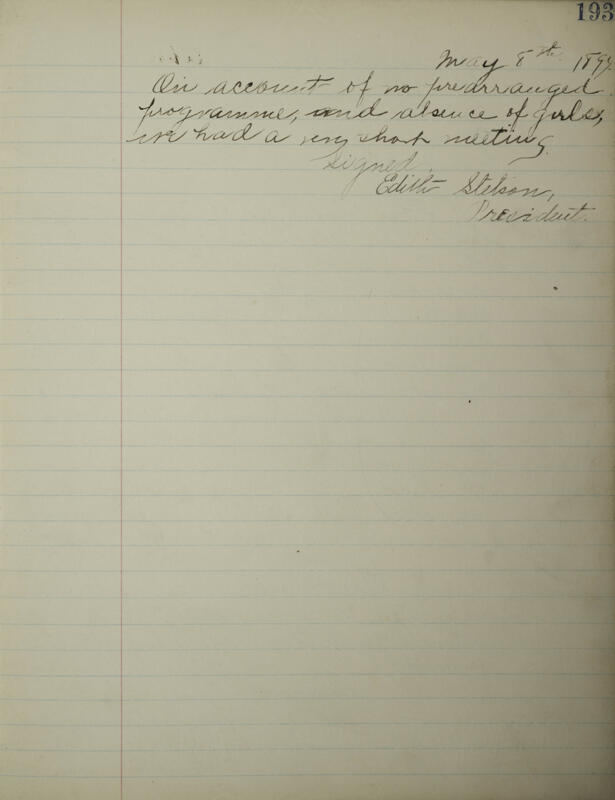 193
May 8th 1897
On account of no prearranged
programme, and absence of girls,
we had a very short meeting.
Signed,
Edith Stetson,
President.